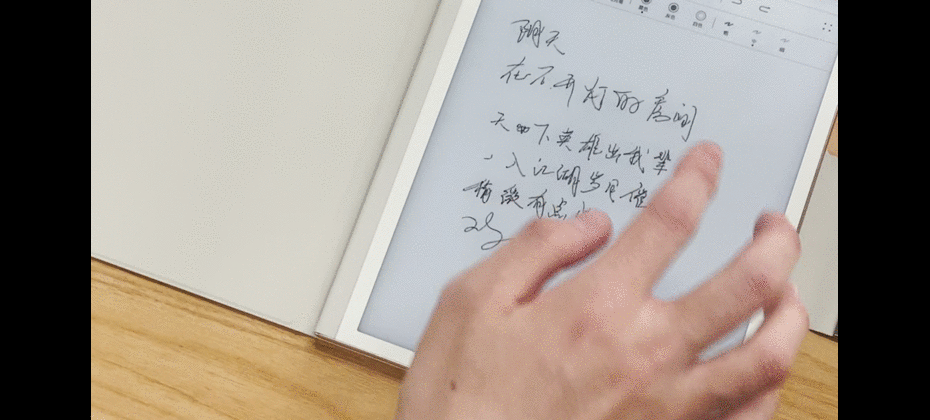 阴天
在不开灯的房间
天下英雄出我辈
一入江湖岁月催
有没有点